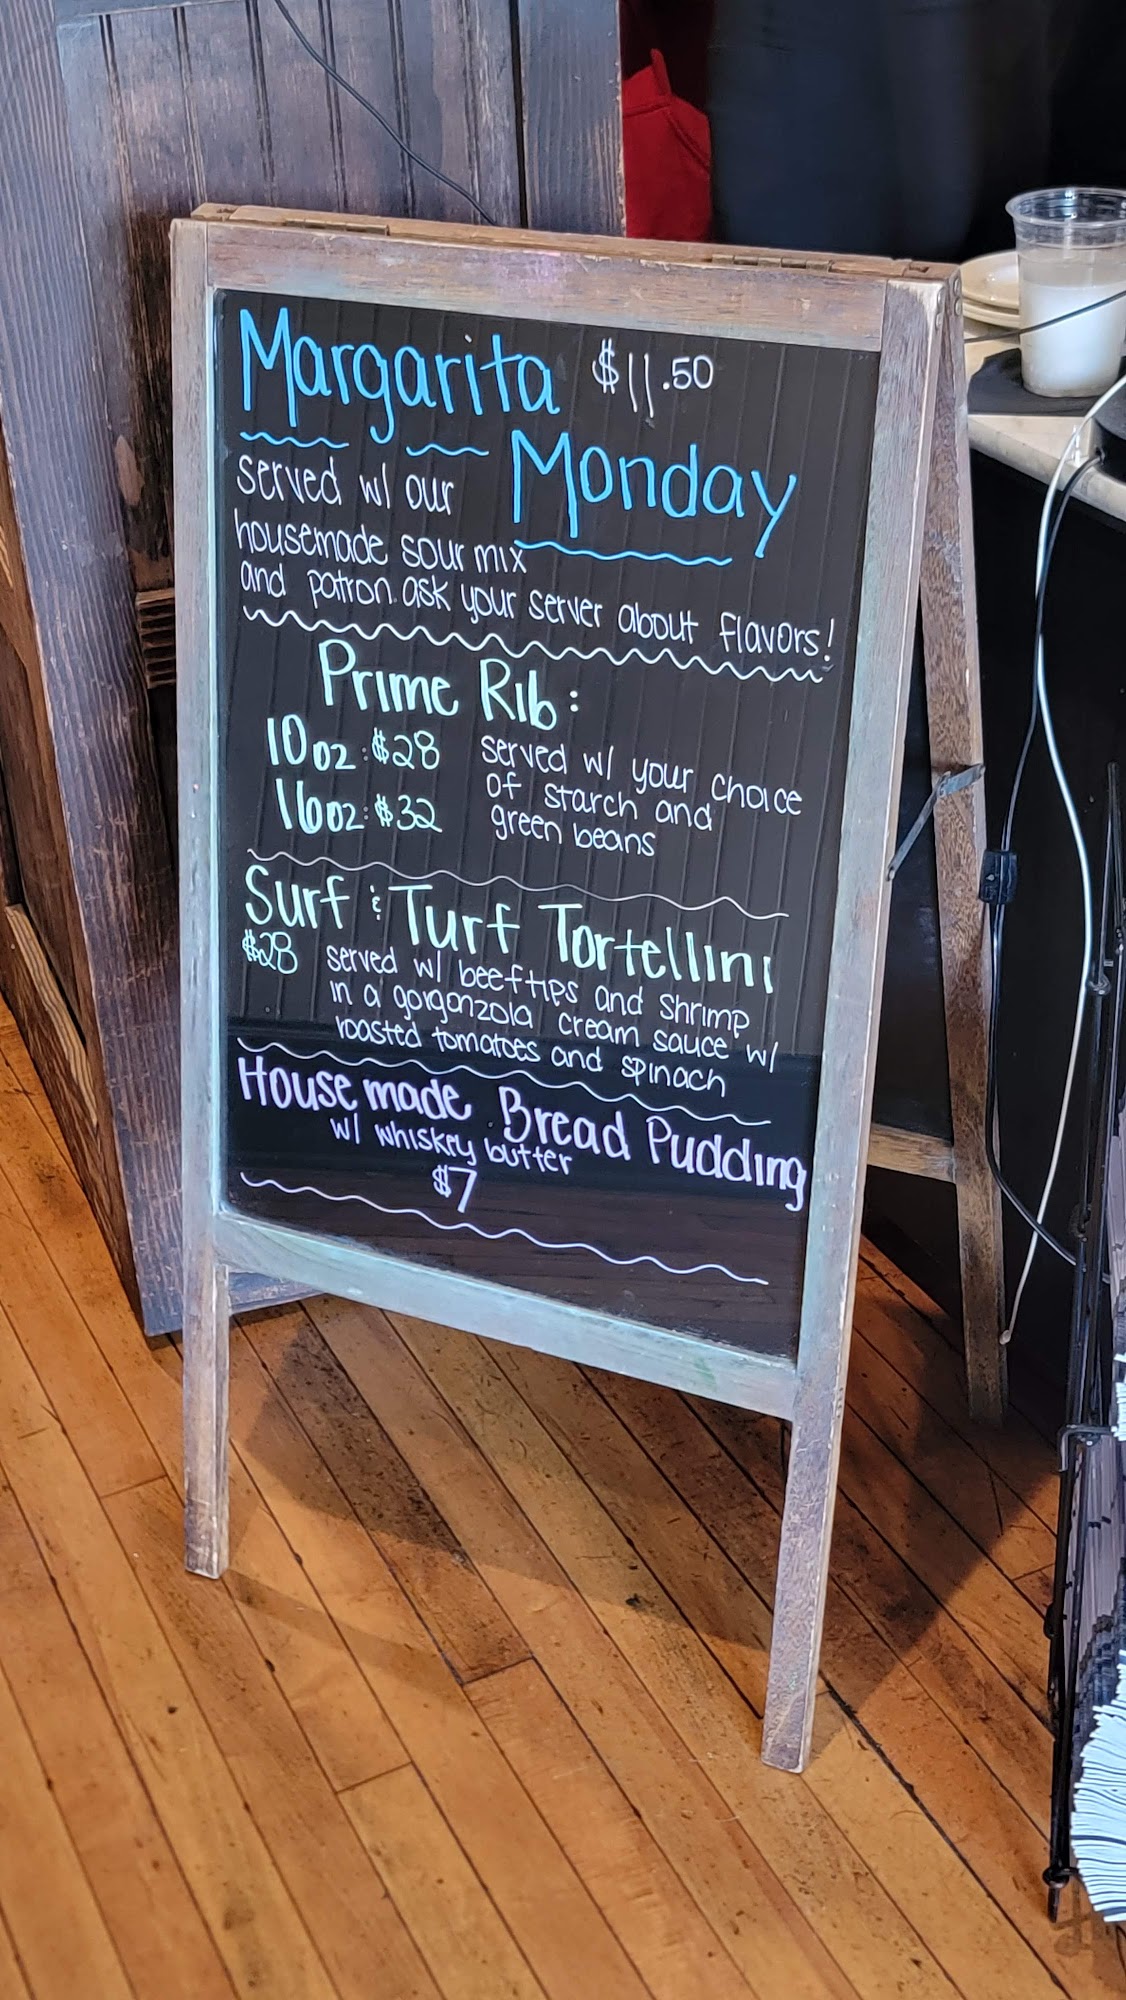 Margarita $11.50
Monday
served w/ our
housemade sour mix
and patron. ask your server about flavors!
Prime Rib:
10oz: $28
16oz: $32
served w/ your choice
of starch and
green beans
Surf & Turf Tortellini
$28
served w/ beef tips and shrimp
in a gorganzola cream sauce w/
roasted tomatoes and spinach
House made Bread Pudding
w/ whiskey butter
$7